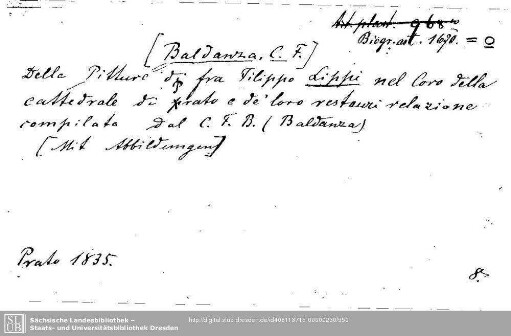 Art. plast. 968 n
Biogr. art. 1690. = o
[Baldanza, C. F.]
Delle Pitture di fra Filippo Lippi nel Coro della
cattedrale di Prato e de' loro restauri relazione
compilata dal C. F. B. (Baldanza)
[Mit Abbildungen]
Prato 1835.
8.
Sächsische Landesbibliothek –
Staats- und Universitätsbibliothek Dresden